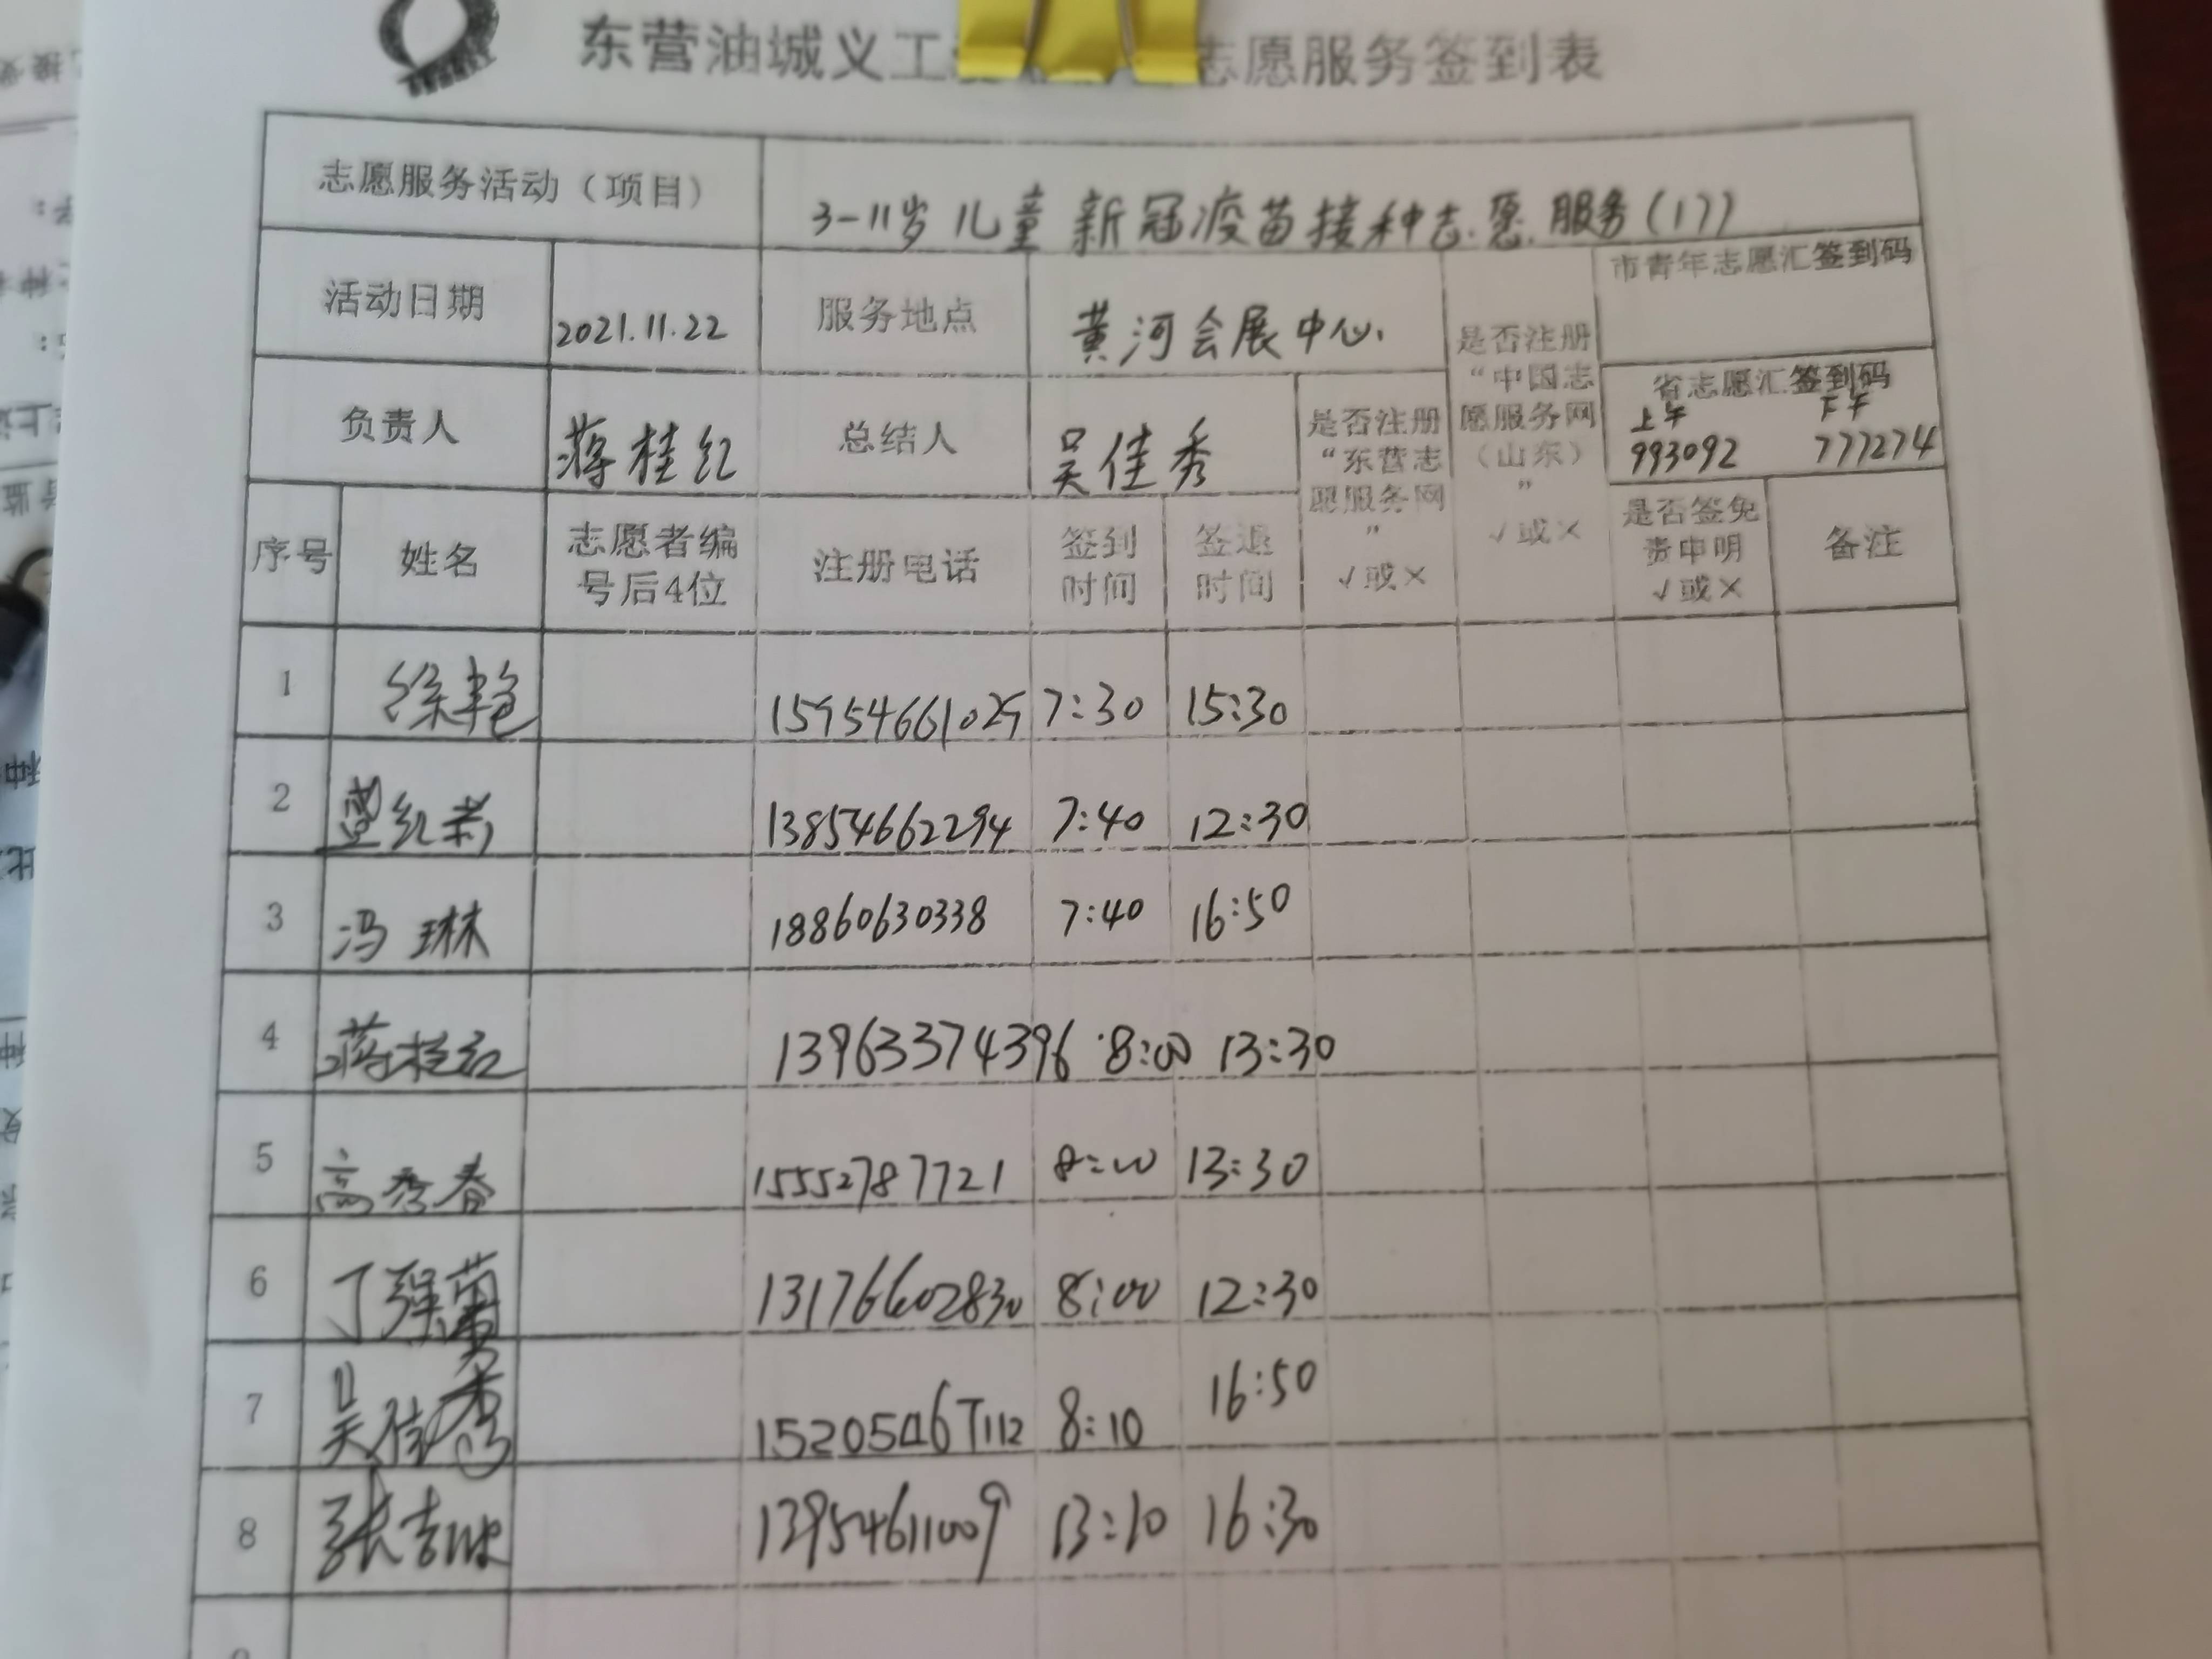 东营油城义工 志愿服务签到表
志愿服务活动（项目） 3-11岁儿童新冠疫苗接种志愿服务(17)
活动日期 2021.11.22 服务地点 黄河会展中心
是否注册“中国志愿服务网（山东）” √或×
市青年志愿汇签到码
负责人 蒋桂红 总结人 吴佳秀
是否注册“东营志愿服务网” √或×
省志愿汇签到码
上午 下午
993092 777274
序号 姓名 志愿者编号后4位 注册电话 签到时间 签退时间 是否签免责申明 √或× 备注
1 徐艳 15954661029 7:30 15:30
2 红 13854662294 7:40 12:30
3 冯琳 18860630338 7:40 16:50
4 蒋桂红 13963374396 8:00 13:30
5 高秀春 15552787721 8:00 13:30
6 丁强 13176602830 8:00 12:30
7 吴佳秀 15205467112 8:10 16:50
8 张吉 13954611009 13:10 16:30